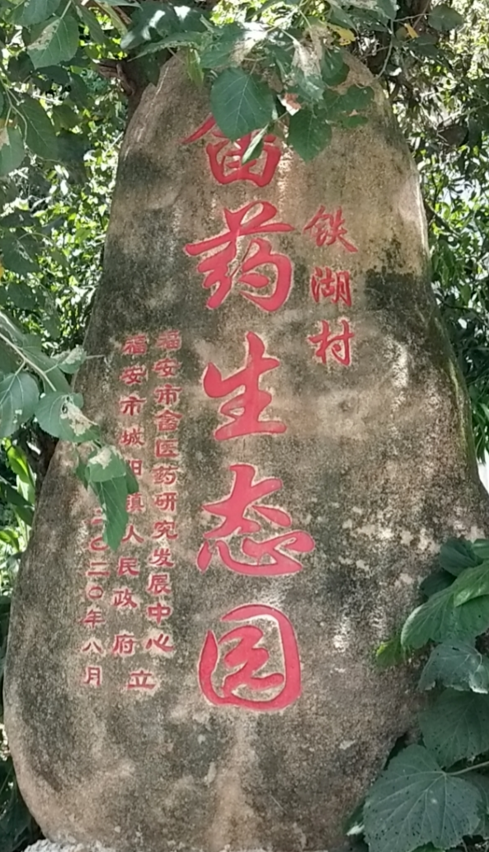 铁湖村
畲药生态园
福安市畲医药研究发展中心
福安市城阳镇人民政府立
二〇二〇年八月